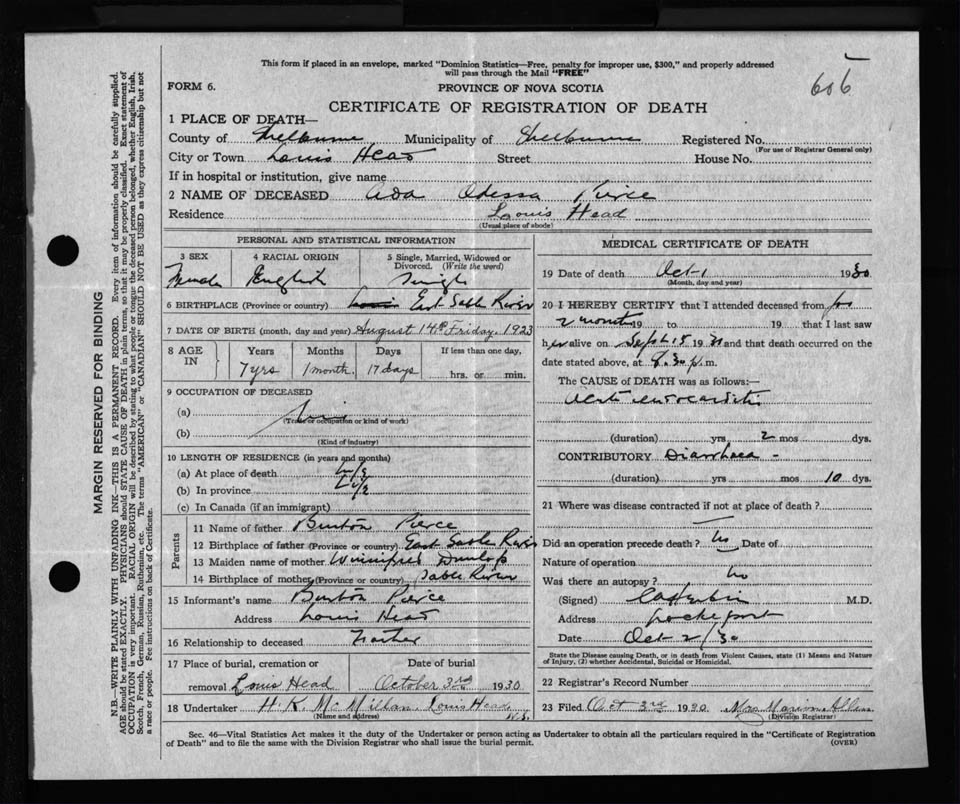 606
This form if placed in an envelope, marked "Dominion Statistics—Free, penalty for improper use, $300," and properly addressed
will pass through the Mail "FREE"
FORM 6.
PROVINCE OF NOVA SCOTIA
CERTIFICATE OF REGISTRATION OF DEATH
1 PLACE OF DEATH—
County of Shelburne Municipality of Shelburne Registered No.
(For use of Registrar General only)
City or Town Louis Head Street House No.
If in hospital or institution, give name
2 NAME OF DECEASED Ada Odessa Pierce
Residence Louis Head
(Usual place of abode)
PERSONAL AND STATISTICAL INFORMATION
3 SEX 4 RACIAL ORIGIN 5 Single, Married, Widowed or
Divorced. (Write the word)
Female English Single
6 BIRTHPLACE (Province or country) East Sable River
7 DATE OF BIRTH (month, day and year) August 14th Friday. 1923
8 AGE IN Years Months Days If less than one day,
7 yrs 1 month. 17 days hrs. or min.
9 OCCUPATION OF DECEASED
(a)
(Trade or occupation or kind of work)
(b)
(Kind of industry)
10 LENGTH OF RESIDENCE (in years and months)
(a) At place of death Life
(b) In province Life
(c) In Canada (if an immigrant)
Parents
11 Name of father Burton Pierce
12 Birthplace of father (Province or country) East Sable River
13 Maiden name of mother Winnifred Dunlop
14 Birthplace of mother (Province or country) Sable River
15 Informant's name Burton Pierce
Address Louis Head
16 Relationship to deceased Father
17 Place of burial, cremation or Date of burial
removal Louis Head October 3rd 1930
18 Undertaker H. K. McMillan Louis Head N.S.
(Name and address)
MEDICAL CERTIFICATE OF DEATH
19 Date of death Oct 1 1930
(Month, day and year)
20 I HEREBY CERTIFY that I attended deceased from for
2 months 19 to 19 that I last saw
her alive on Sept 15 1930 and that death occurred on the
date stated above, at 8.30 p.m.
The CAUSE of DEATH was as follows:—
Acute endocarditis
(duration) yrs 2 mos dys.
CONTRIBUTORY Diarrhoea -
(duration) yrs mos 10 dys.
21 Where was disease contracted if not at place of death?
Did an operation precede death? No Date of
Nature of operation
Was there an autopsy? No
(Signed) M.D.
Address Lockeport
Date Oct 2/30
State the Disease causing Death, or in death from Violent Causes, state (1) Means and Nature
of Injury, (2) whether Accidental, Suicidal or Homicidal.
22 Registrar's Record Number
23 Filed Oct 3rd 1930 Mrs Marion Allen
(Division Registrar)
Sec. 46—Vital Statistics Act makes it the duty of the Undertaker or person acting as Undertaker to obtain all the particulars required in the "Certificate of Registration
of Death" and to file the same with the Division Registrar who shall issue the burial permit.
(OVER)
MARGIN RESERVED FOR BINDING
N.B.—WRITE PLAINLY WITH UNFADING INK—THIS IS A PERMANENT RECORD. Every item of information should be carefully supplied.
AGE should be stated EXACTLY. PHYSICIANS should STATE CAUSE OF DEATH in plain terms, so that it may be properly classified. Exact statement of
OCCUPATION is very important. RACIAL ORIGIN will be described by stating to what people or tongue the deceased person belonged, whether English, Irish,
Scotch, French, German, Russian, Ruthenian, etc. The terms "AMERICAN" or "CANADIAN" SHOULD NOT BE USED as they express citizenship but not
a race or people. See instructions on back of Certificate.